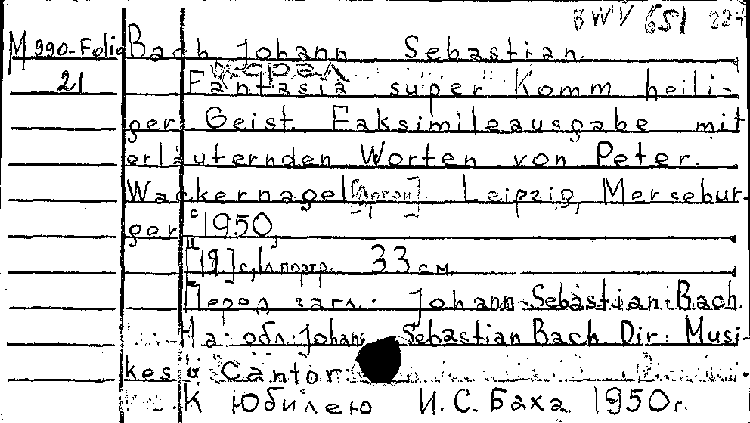 BWV 651
M 990-Folio Bach Johann Sebastian
21 Fantasia super Komm heili-
ger Geist. Faksimileausgabe mit
erläuternden Worten von Peter.
Wackernagel Leipzig, Mersebur-
ger 1950
33 см.
Перед загл.: Johann Sebastian Bach.
На обл.: Johann Sebastian Bach Dir. Musi-
kes u Cantor
К юбилею И.С. Баха 1950г.